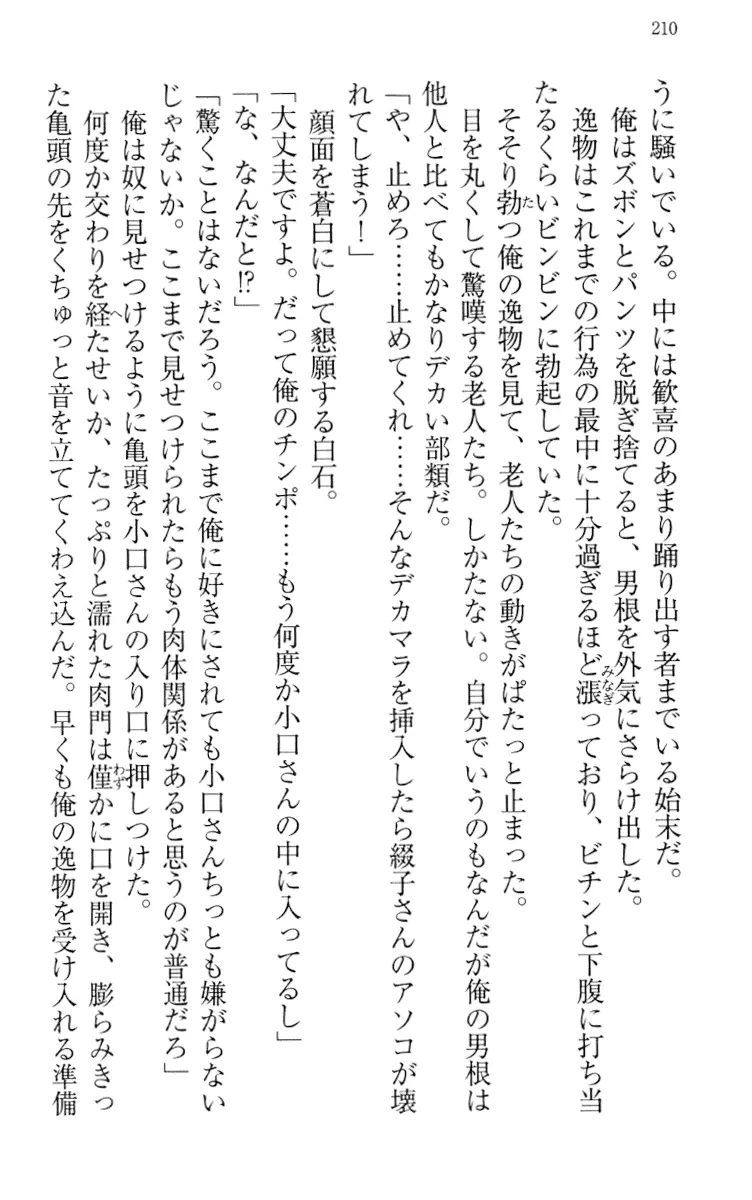 210
うに騒いでいる。中には歓喜のあまり踊り出す者までいる始末だ。
俺はズボンとパンツを脱ぎ捨てると、男根を外気にさらけ出した。
逸物はこれまでの行為の最中に十分過ぎるほど漲っており、ビチンと下腹に打ち当
たるくらいビンビンに勃起していた。
そそり勃つ俺の逸物を見て、老人たちの動きがぱたっと止まった。
目を丸くして驚嘆する老人たち。しかたない。自分でいうのもなんだが俺の男根は
他人と比べてもかなりデカい部類だ。
「や、止めろ……止めてくれ……そんなデカマラを挿入したら綴子さんのアソコが壊
れてしまう！」
顔面を蒼白にして懇願する白石。
「大丈夫ですよ。だって俺のチンポ……もう何度か小口さんの中に入ってるし」
「な、なんだと!?」
「驚くことはないだろう。ここまで俺に好きにされても小口さんちっとも嫌がらない
じゃないか。ここまで見せつけられたらもう肉体関係があると思うのが普通だろ」
俺は奴に見せつけるように亀頭を小口さんの入り口に押しつけた。
何度か交わりを経たせいか、たっぷりと濡れた肉門は僅かに口を開き、膨らみきっ
た亀頭の先をくちゅっと音を立ててくわえ込んだ。早くも俺の逸物を受け入れる準備